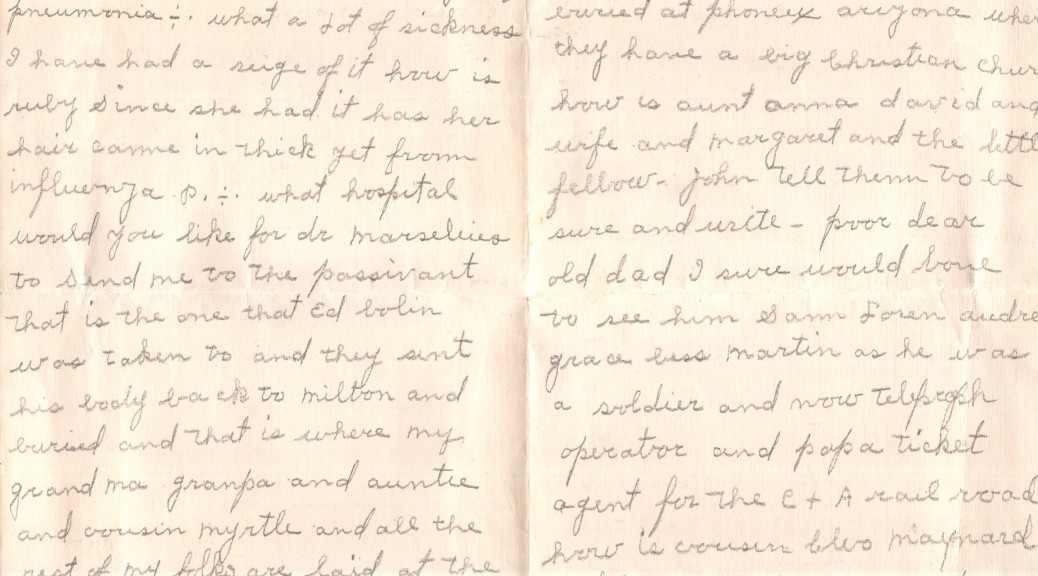 pneumonia ÷. what a lot of sickness
I have had a seige of it how is
ruby since she had it has her
hair came in thick yet from
influenza p. ÷. what hospital
would you like for dr
to send me to the passivant
that is the one that Ed bolin
was taken to and they sent
his body back to milton and
buried and that is where my
grand ma granpa and auntie
and cousin myrtle and all the
rest of my folks are laid at the
buried at phoneex aryzona
they have a big Christian
how is aunt anna david and
wife and margaret and the
fellow - john tell them to be
sure and write - poor dear
old dad I sure would love
to see him Sam Loren
grace bess martin as he was
a soldier and now
operator and papa ticket
agent for the C + A rail road
how is cousin Cleo maynard